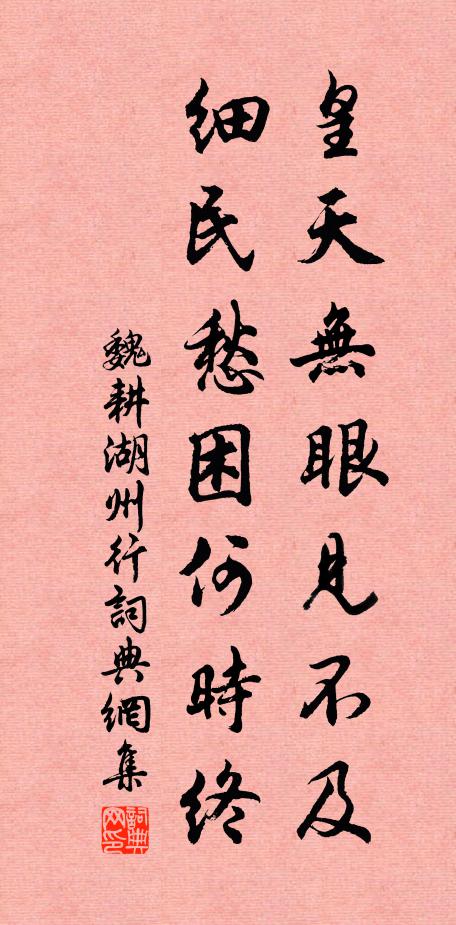 皇天無眼見不及
細民愁困何時終
魏耕湖州行詞典網集
詞典网印